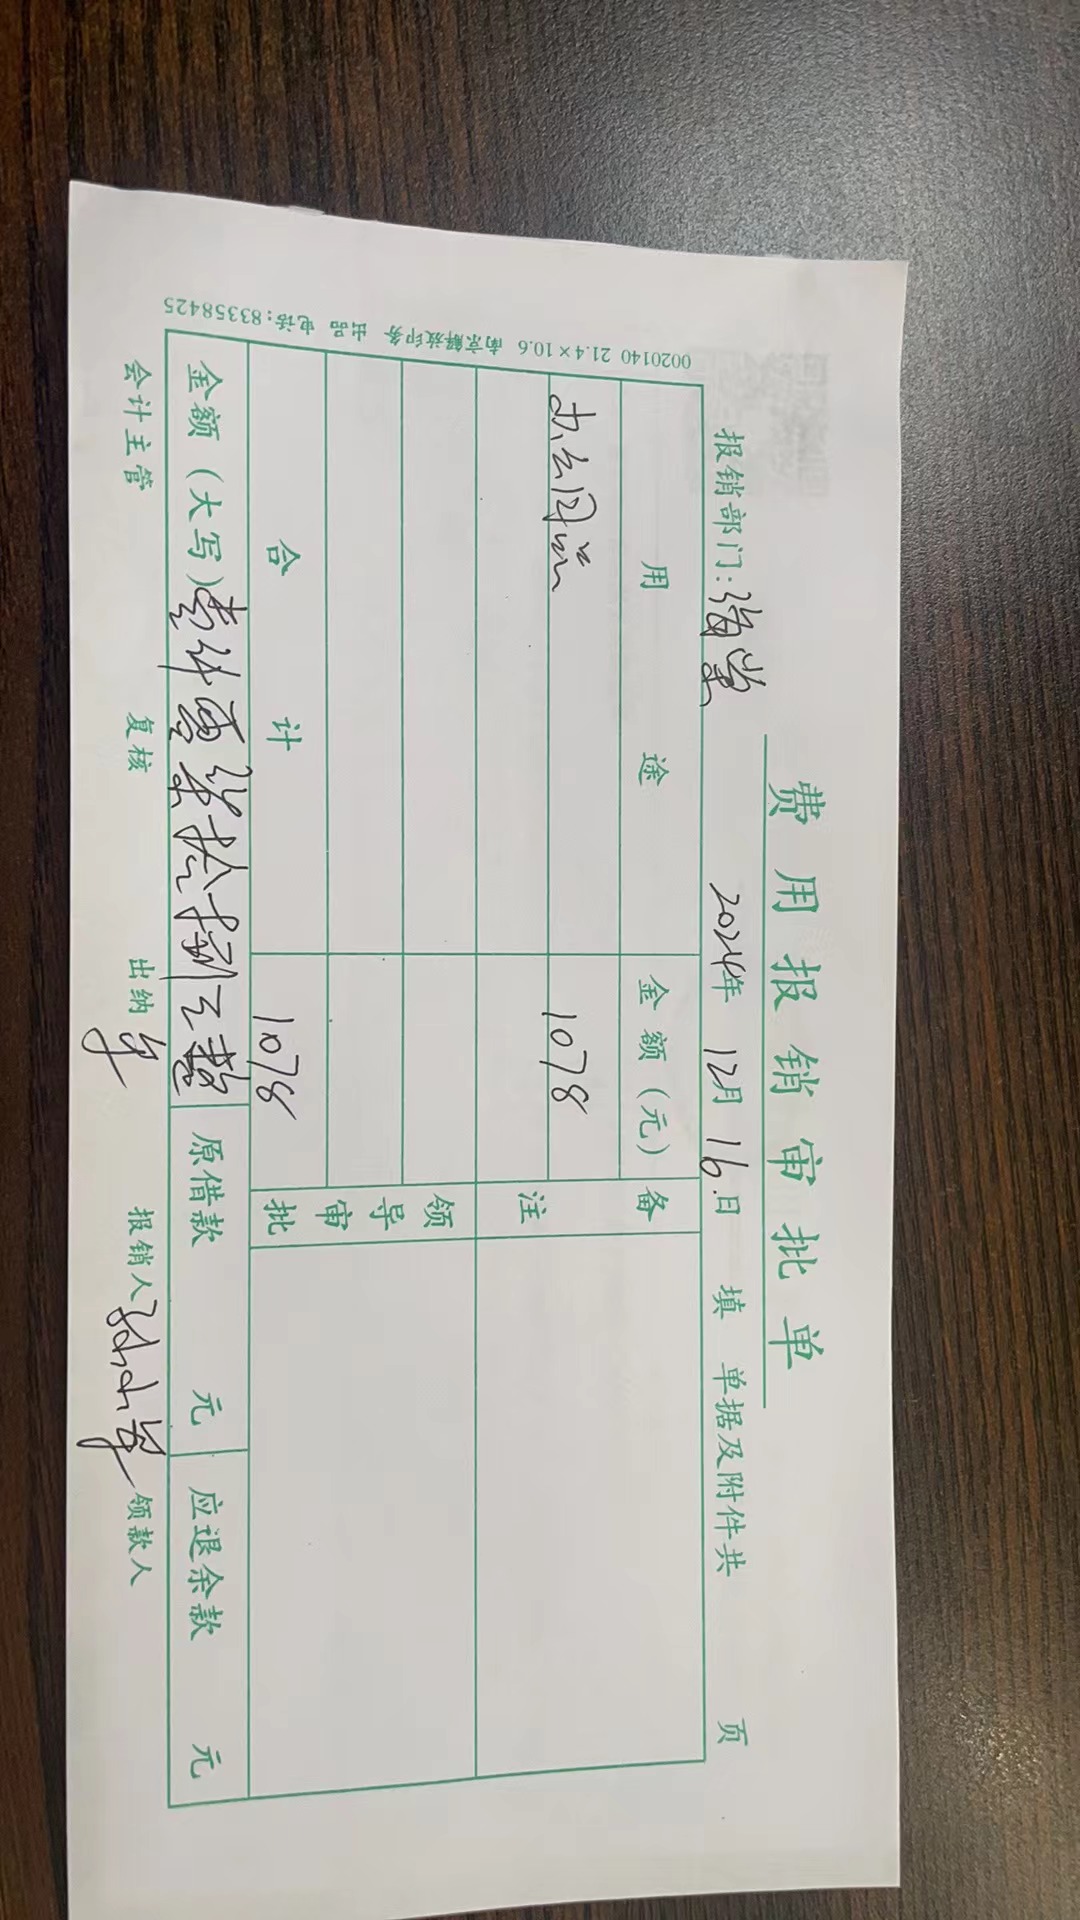 费用报销审批单
报销部门：海棠 2024年 12月 16日 填 单据及附件共 页
用途 金额（元） 备注
办公用品 1078
领导审批
合计 1078
金额（大写）壹仟零柒拾捌元整 原借款 元 应退余款 元
会计主管 复核 出纳 报销人 领款人
0020140 21.4×10.6 南京解放印务 出品 电话：83358425